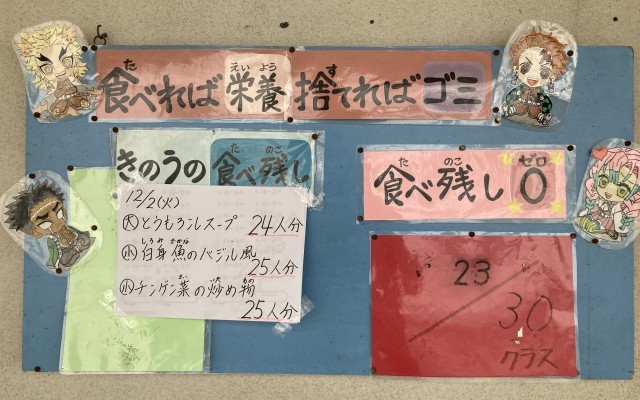 食べれば栄養 捨てればゴミ
きのうの食べ残し
12/2(火)
大 とうもろこしスープ 24人分
小 白身魚のバジル風 25人分
小 チンゲン菜の炒め物 25人分
食べ残し0
23/30
クラス